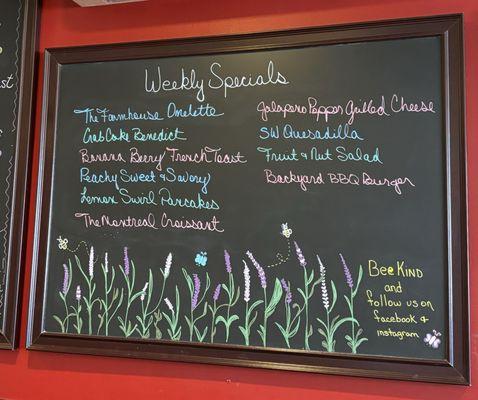 Weekly Specials
The Farmhouse Omelette
Crab Cake Benedict
Banana Berry French Toast
Peachy Sweet & Savory
Lemon Swirl Pancakes
The Montreal Croissant
Jalapeno Popper Grilled Cheese
SW Quesadilla
Fruit & Nut Salad
Backyard BBQ Burger
Bee Kind
and
follow us on
facebook &
Instagram